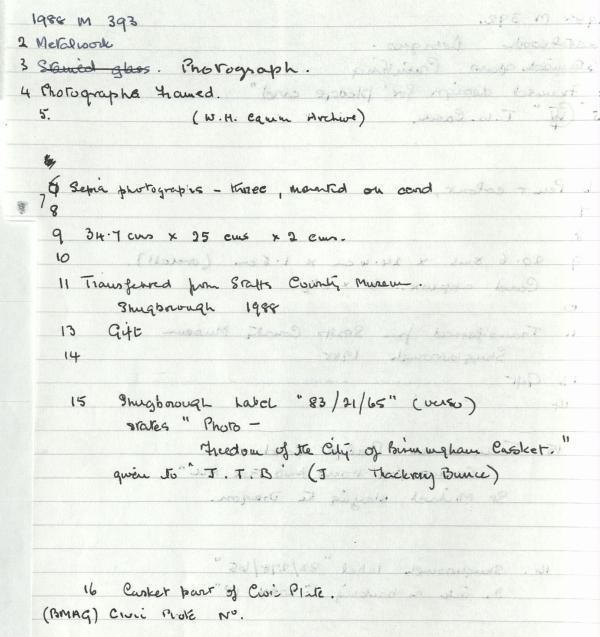 1988 M 393
2 Metalwork
3 Stained glass. Photograph.
4 Photographs framed.
5. (W.H. Archive)
6 Sepia photographs - three, mounted on card
7
8
9 34.7 cms x 25 cms x 2 cms.
10
11 Transferred from Staffs County Museum.
Shugborough 1988
13 Gift
14
15 Shugborough Label "83/21/65" (verso)
states "Photo -
Freedom of the City of Birmingham Casket."
given to "J.T.B" (J Thackray Bunce)
16 Casket part of Civic Plate.
(BMAG) Civic Plate No.